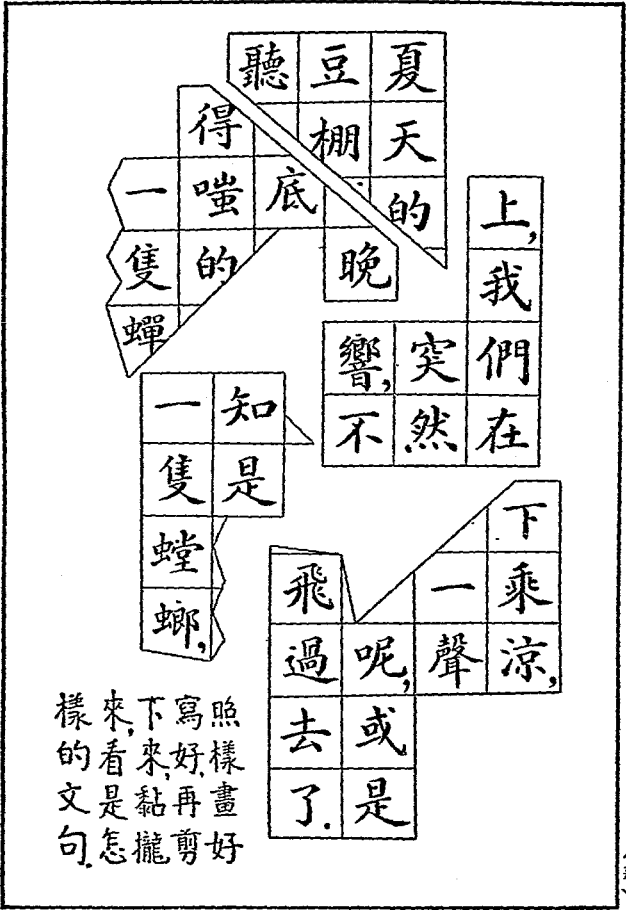 夏天的
豆棚
聽
晚
底
得嗤的
一隻蟬
上,我們在
突然
響,不
知是
一隻螳螂,
下乘涼,
一聲
呢,或是
飛過去了.
照樣畫好
寫好.再剪
下來,黏攏
來,看是怎
樣的文句.